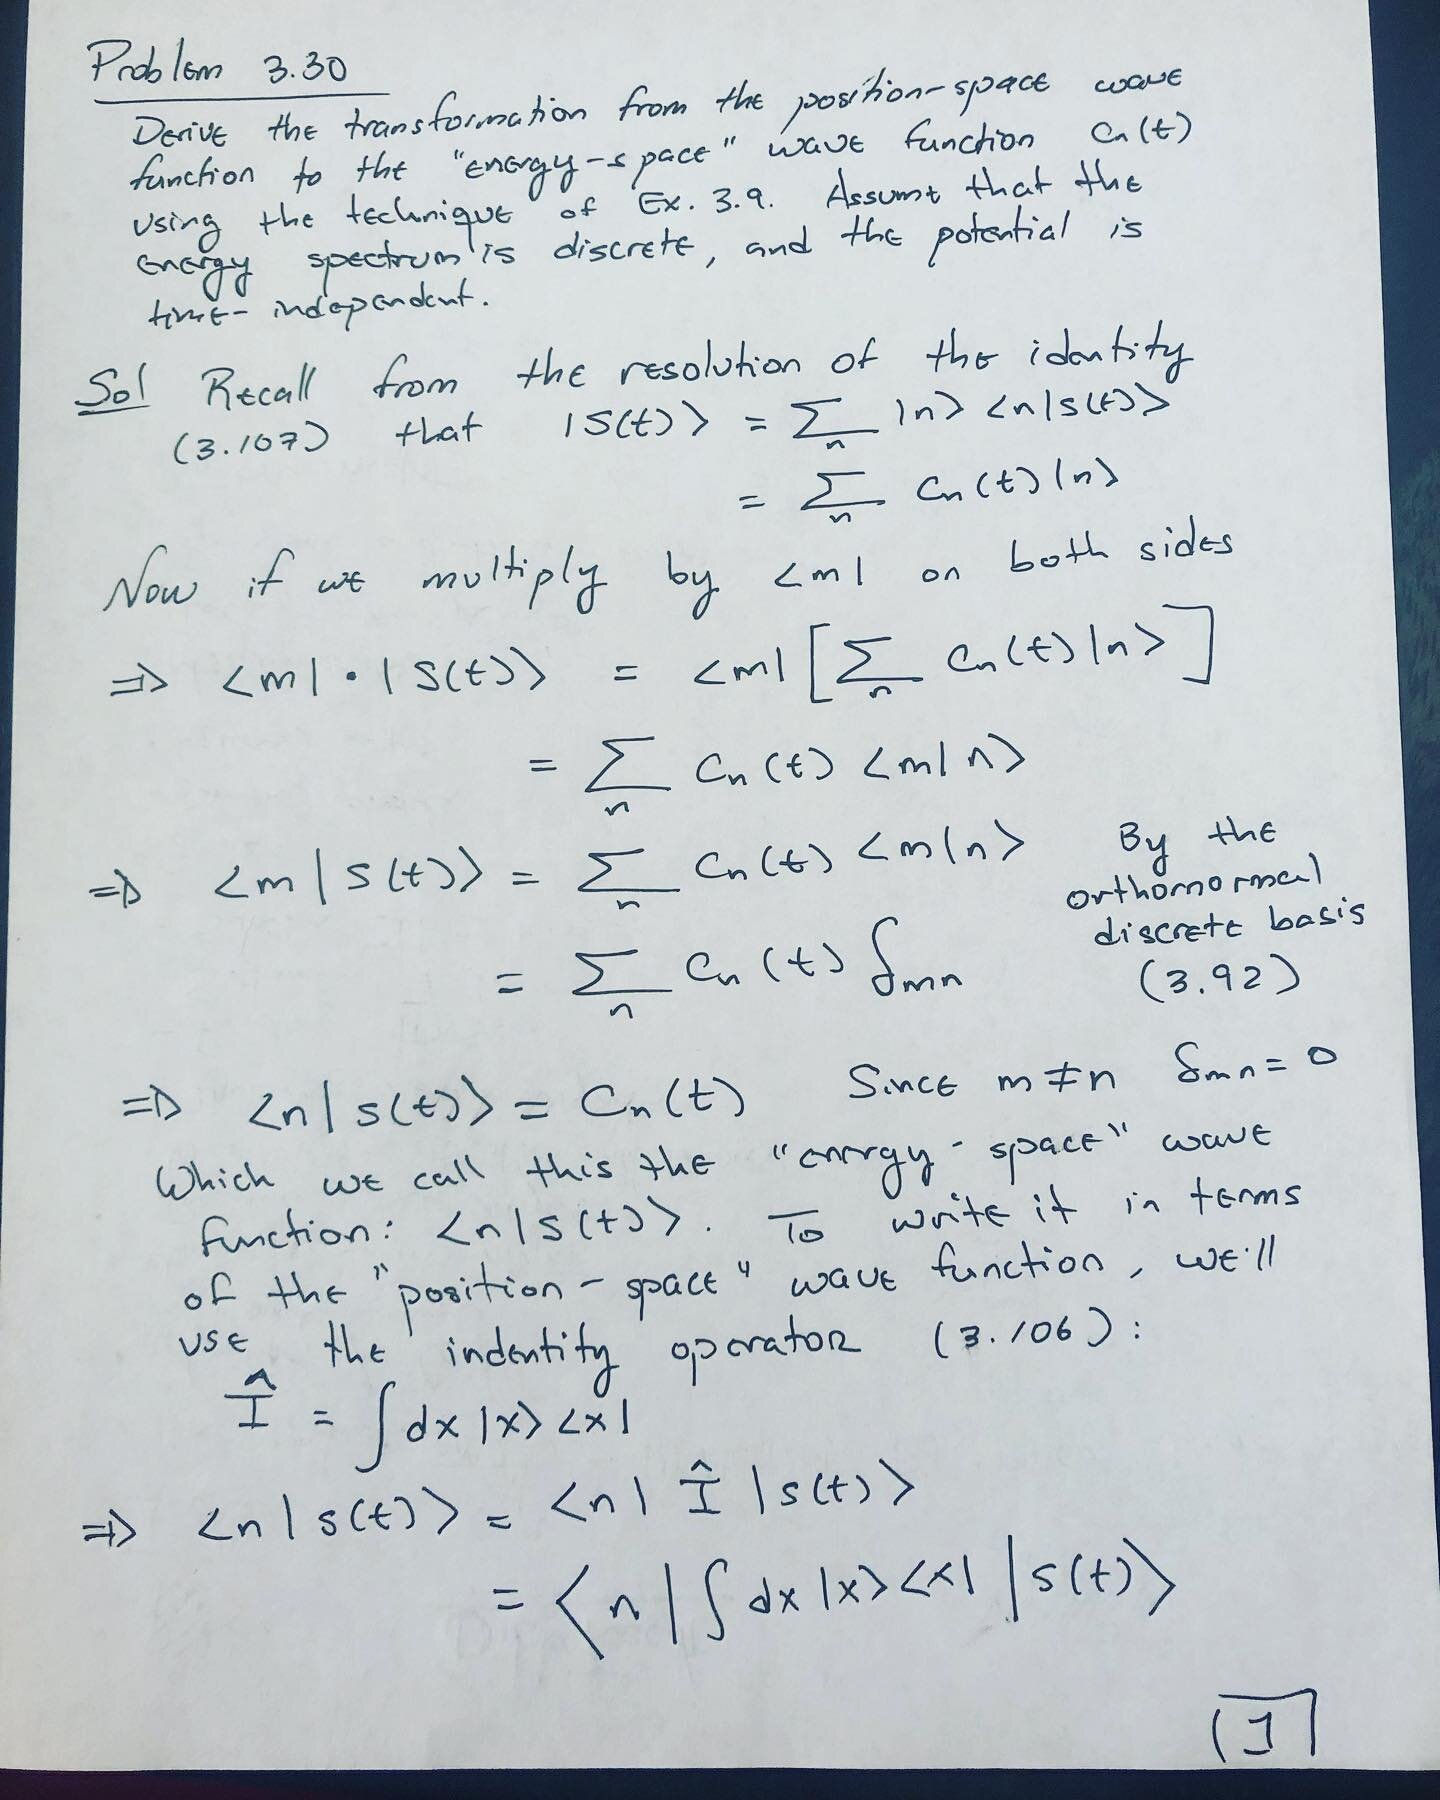 Problem 3.30
Derive the transformation from the position-space wave
function to the "energy-space" wave function Cn(t)
using the technique of Ex. 3.9. Assume that the
energy spectrum is discrete, and the potential is
time-independent.
Sol Recall from the resolution of the identity
(3.107) that |S(t)⟩ = Σ_n |n⟩⟨n|S(t)⟩
= Σ_n Cn(t)|n⟩
Now if we multiply by <m| on both sides
⇒ <m|·|S(t)⟩ = <m|[Σ_n Cn(t)|n>]
= Σ_n Cn(t) <m|n⟩
⇒ <m|S(t)⟩ = Σ_n Cn(t) <m|n> By the
orthornormal
discrete basis
= Σ_n Cn(t) δmn (3.92)
⇒ <n|S(t)⟩ = Cn(t) Since m≠n δmn = 0
Which we call this the "energy-space" wave
function: <n|S(t)>. To write it in terms
of the "position-space" wave function, we'll
use the indentity operator (3.106):
Î = ∫dx |x⟩<x|
⇒ <n|S(t)⟩ = <n| Î |S(t)⟩
= ⟨n|∫dx |x⟩<x| |S(t)⟩
1